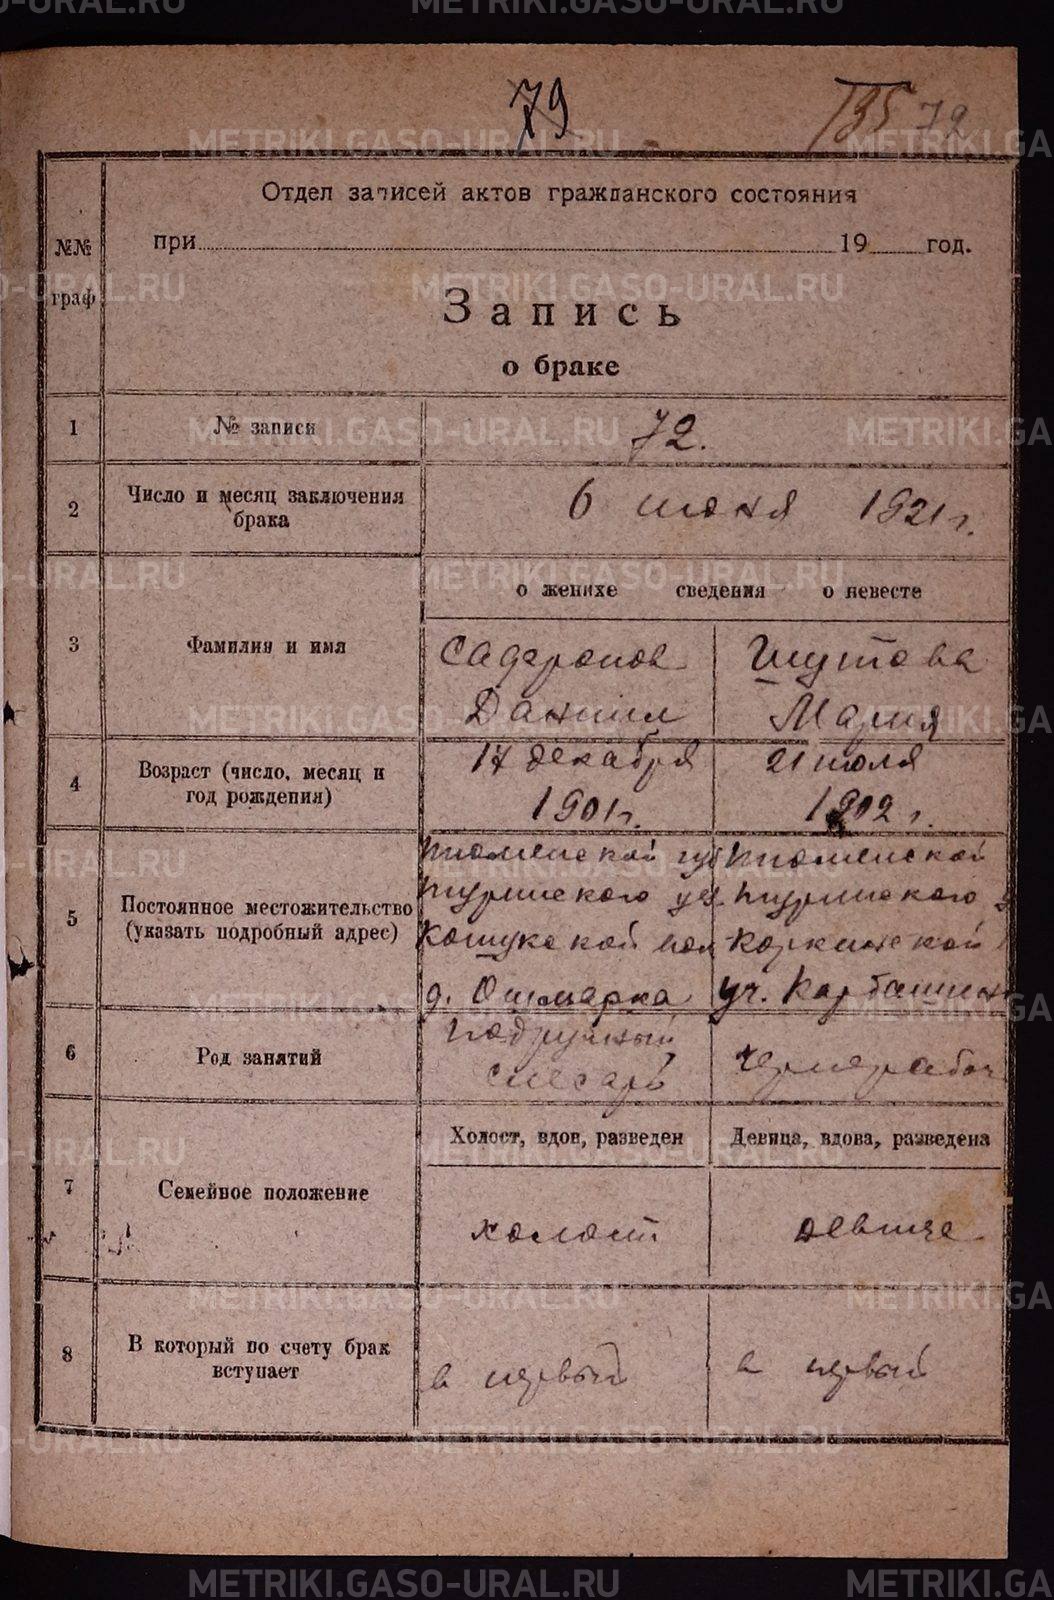 79
135 72
Отдел записей актов гражданского состояния
при 19 год.
№№
граф
Запись
о браке
1 № записи 72.
2 Число и месяц заключения
брака
6 июня 1921 г.
о женихе сведения о невесте
3 Фамилия и имя
Сафронов Шутова
Даниил Мария
4 Возраст (число, месяц и
год рождения)
17 декабря 21 июля
1901 г. 1902 г.
5 Постоянное местожительство
(указать подробный адрес)
Тюменской губ Тюменской
Туринского уез. Туринского у
Кошукской вол Коркинской
д. Ошмарка уч. Карбашин
6 Род занятий
Подручный
слесарь
чернорабоч
Холост, вдов, разведен Девица, вдова, разведена
7 Семейное положение
холост девица
8 В который по счету брак
вступает
в первый в первый
METRIKI.GASO-URAL.RU